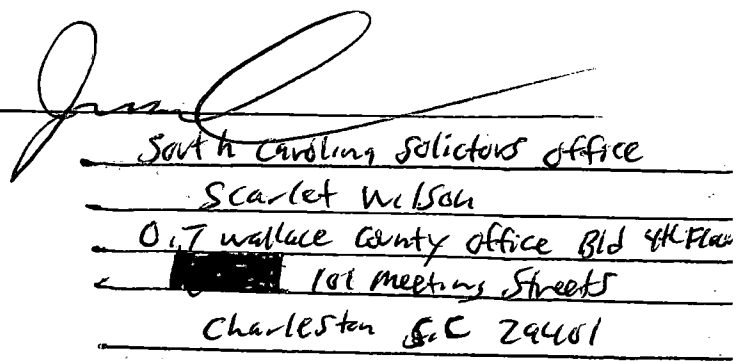 South Carolina Solictors office
Scarlet Wilson
O.T wallace County office Bld 4th Floor
101 Meeting Streets
Charleston S.C 29401